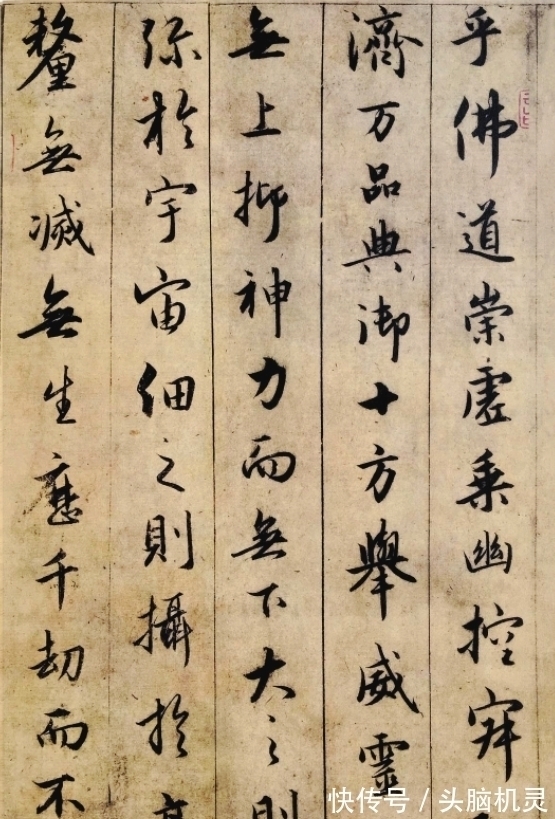 乎佛道崇虚乘幽控寂
濟万品典御十方舉威靈
無上抑神力而無下大之則
弥於宇宙細之則攝於
釐無滅無生歷千劫而不
快传号 / 头脑机灵